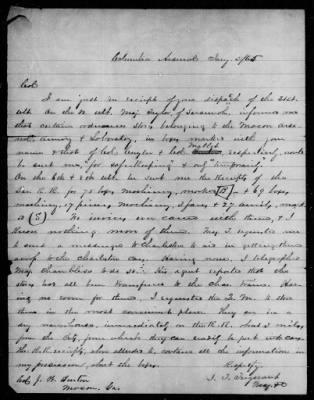 Columbia Arsenal Jany. 2/65
Col.
I am just in receipt of your dispatch of the 31st
ulto. On the ulto. Maj. Taylor, of Savannah, informed me
that certain ordnance stores belonging to the Macon Arse
nal, Armory & Laboratory, in boxes marked with your
name & that of Col. & Col. Mallet, respectively, would
be sent me, for safe keeping & only temporarily.
On the & ulto. he sent me the Receipts of the
R.R. for 75 boxes Machinery, marked [B], & 69 boxes
machinery, 17 pieces, machinery, 5 parts & 27 marked
a (S). No invoices ever came with them, & I
know nothing more of them. Maj. T. requested me
to send a messenger to Charleston to aid in getting them
across to the Charleston depot. Having none, I telegraphed
Maj. Chambliss to do it. His agent reports that the
stores had all been transferred to the Char. trains. Having
no room for them, I requested the Q.M. to store
them in the most convenient place. They are in a
dry warehouse, immediately on the R.R. about 2 miles
from the City, from whence they can easily be put into cars.
The R.R. receipts, above alluded to, contains all the information in
my possession, about the boxes.
Respectfy.
Col. J. H. Burton
Macon, Ga.
J. T. Trezevant
Maj. &c